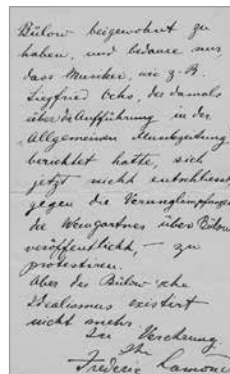 Bülow beigewohnt zu
haben, und bedaure nur,
dass Musiker, wie z. B.
Siegfried Ochs, der damals
über die Aufführung in der
Allgemeinen Musikzeitung
berichtet hatte, sich
jetzt nicht entschliesst,
gegen die Verunglimpfungen
die Weingartner über Bülow
veröffentlicht, – zu
protestiren.
Aber das Bülow'sche
Idealismus existirt
nicht mehr.
In Verehrung
Ihr
Frederic Lamond